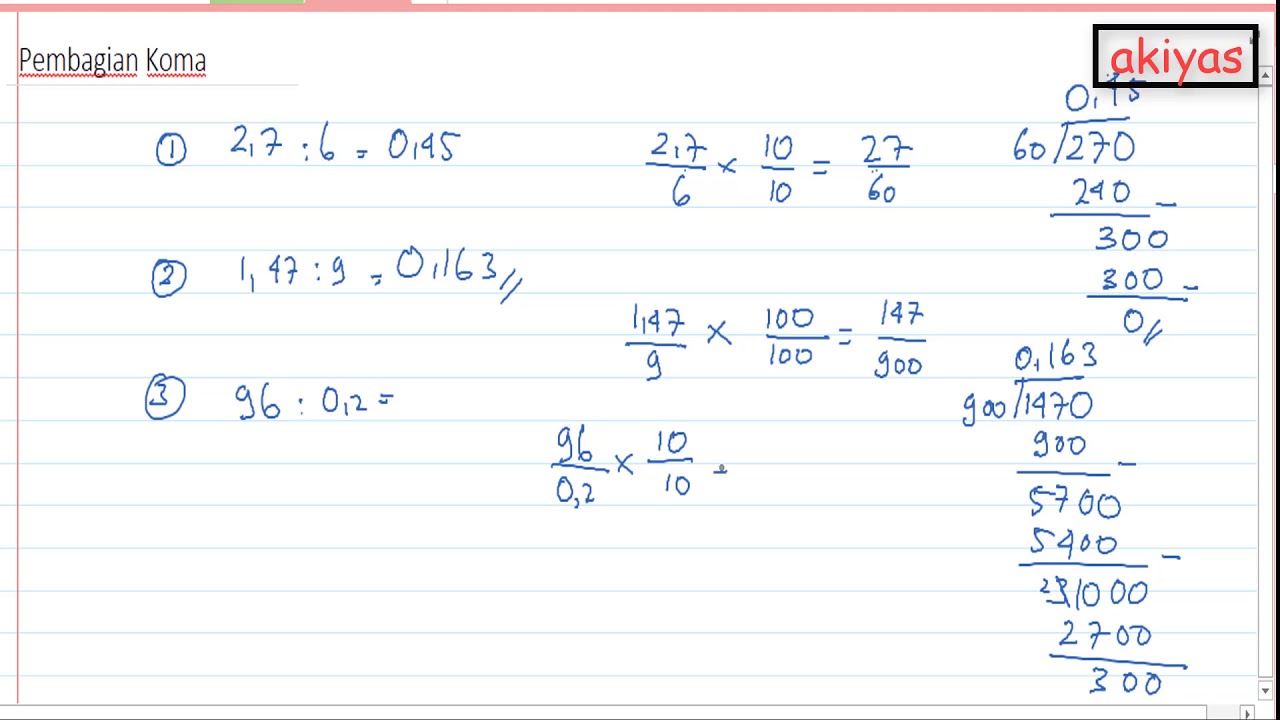 Pembagian Koma
akiyas
① 2,7 : 6 = 0,45
2,7/6 × 10/10 = 27/60
0,45
60/270
240 –
300
300 –
0//
② 1,47 : 9 = 0,163//
1,47/9 × 100/100 = 147/900
0,163
900/1470
900 –
5700
5400 –
3000
2700
300
③ 96 : 0,2 =
96/0,2 × 10/10 =